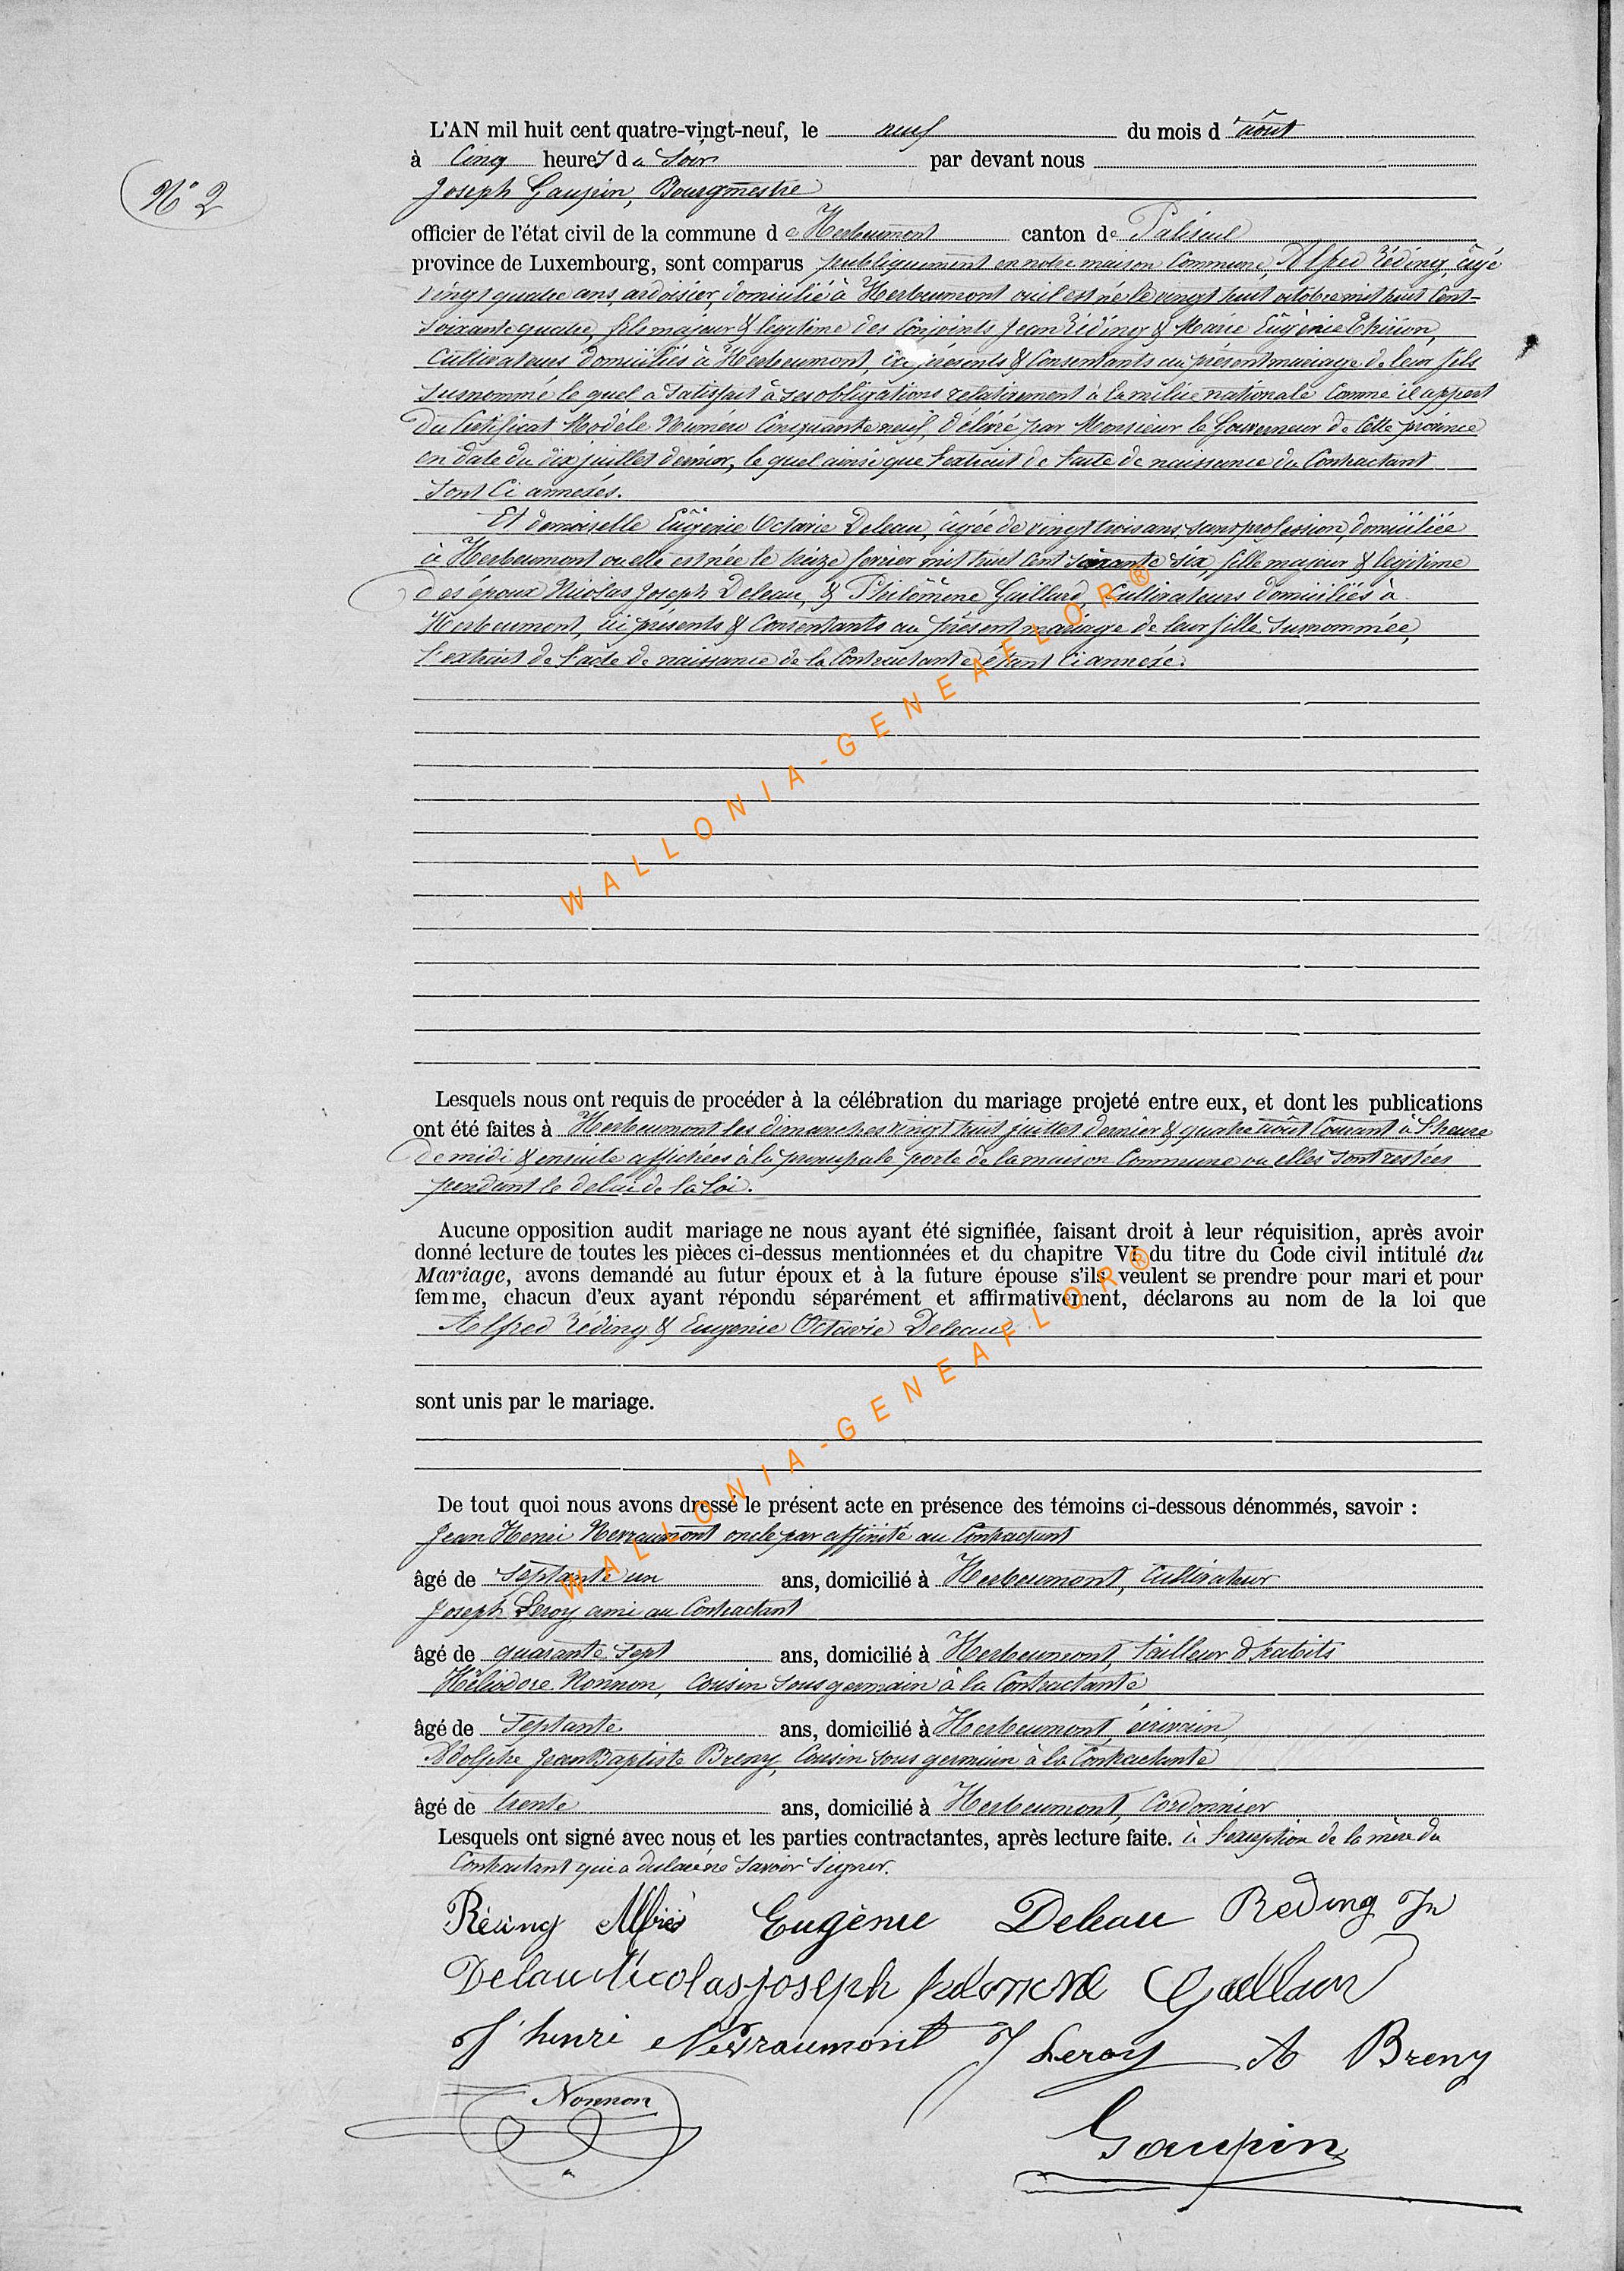 L'AN mil huit cent quatre-vingt-neuf, le neuf du mois d'août
à Cinq heures du Soir par devant nous
N° 2
Joseph Gaupin, Bourgmestre
officier de l'état civil de la commune de Herbeumont canton de Paliseul
province de Luxembourg, sont comparus publiquement en notre maison Commune, Alfred Réding, âgé
vingt quatre ans, ardoisier, domicilié à Herbeumont où il est né le vingt huit octobre mil huit Cent-
Soixante quatre, fils majeur & légitime des Conjoints Jean Réding & Marie Eugènie Thirion,
Cultivateurs domiciliés à Herbeumont, ici présents & Consentants au présent mariage de leur fils
susnommé le quel a Satisfait à ses obligations relativement à la milice nationale Comme il appert
du Certificat Modèle Numéro Cinquante neuf, délivré par Monsieur le Gouverneur de Cette province
en date du dix juillet dernier, le quel ainsi que l'extrait de l'acte de naissance du Contractant
sont Ci annexés.
Et demoiselle Eugénie Octavie Deleau, âgée de vingt trois ans, sans profession, domiciliée
à Herbeumont ou elle est née le seize février mil huit Cent Soixante Six, fille majeur & légitime
des époux Nicolas Joseph Deleau, & Philomène Gaillard, Cultivateurs domiciliés à
Herbeumont, ici présents & Consentants au présent mariage de leur fille susnommée,
l'extrait de l'acte de naissance de la Contractante étant Ci annexé.
WALLONIA-GENEAFLOR®
Lesquels nous ont requis de procéder à la célébration du mariage projeté entre eux, et dont les publications
ont été faites à Herbeumont les dimanches vingt huit juillet dernier & quatre août Courant à l'heure
de midi & ensuite affichées à la principale porte de la maison Commune ou elles sont restées
pendant le delai de la loi.
Aucune opposition audit mariage ne nous ayant été signifiée, faisant droit à leur réquisition, après avoir
donné lecture de toutes les pièces ci-dessus mentionnées et du chapitre VI du titre du Code civil intitulé du
Mariage, avons demandé au futur époux et à la future épouse s'ils veulent se prendre pour mari et pour
femme, chacun d'eux ayant répondu séparément et affirmativement, déclarons au nom de la loi que
Alfred Réding & Eugenie Octavie Deleau
sont unis par le mariage.
WALLONIA-GENEAFLOR®
De tout quoi nous avons dressé le présent acte en présence des témoins ci-dessous dénommés, savoir :
Jean Henri Nevraumont oncle par affinité au Contractant
âgé de Septante un ans, domicilié à Herbeumont, Cultivateur
Joseph Leroy ami au Contractant
âgé de quarante Sept ans, domicilié à Herbeumont, tailleur d'habits
Héliodore Nonnon, Cousin Sous germain à la Contractante
âgé de Septante ans, domicilié à Herbeumont, écrivain,
Adolphe Jean Baptiste Breny, Cousin sous germain à la Contractante
âgé de trente ans, domicilié à Herbeumont, Cordonnier
Lesquels ont signé avec nous et les parties contractantes, après lecture faite. à l'exception de la mère du
Contractant qui a déclaré ne Savoir Signer.
Réding Alfred Eugènie Deleau Reding Jn
Delau Nicolas joseph Gaillard
J henri Nevraumont J Leroy A Breny
Nonnon
Gaupin